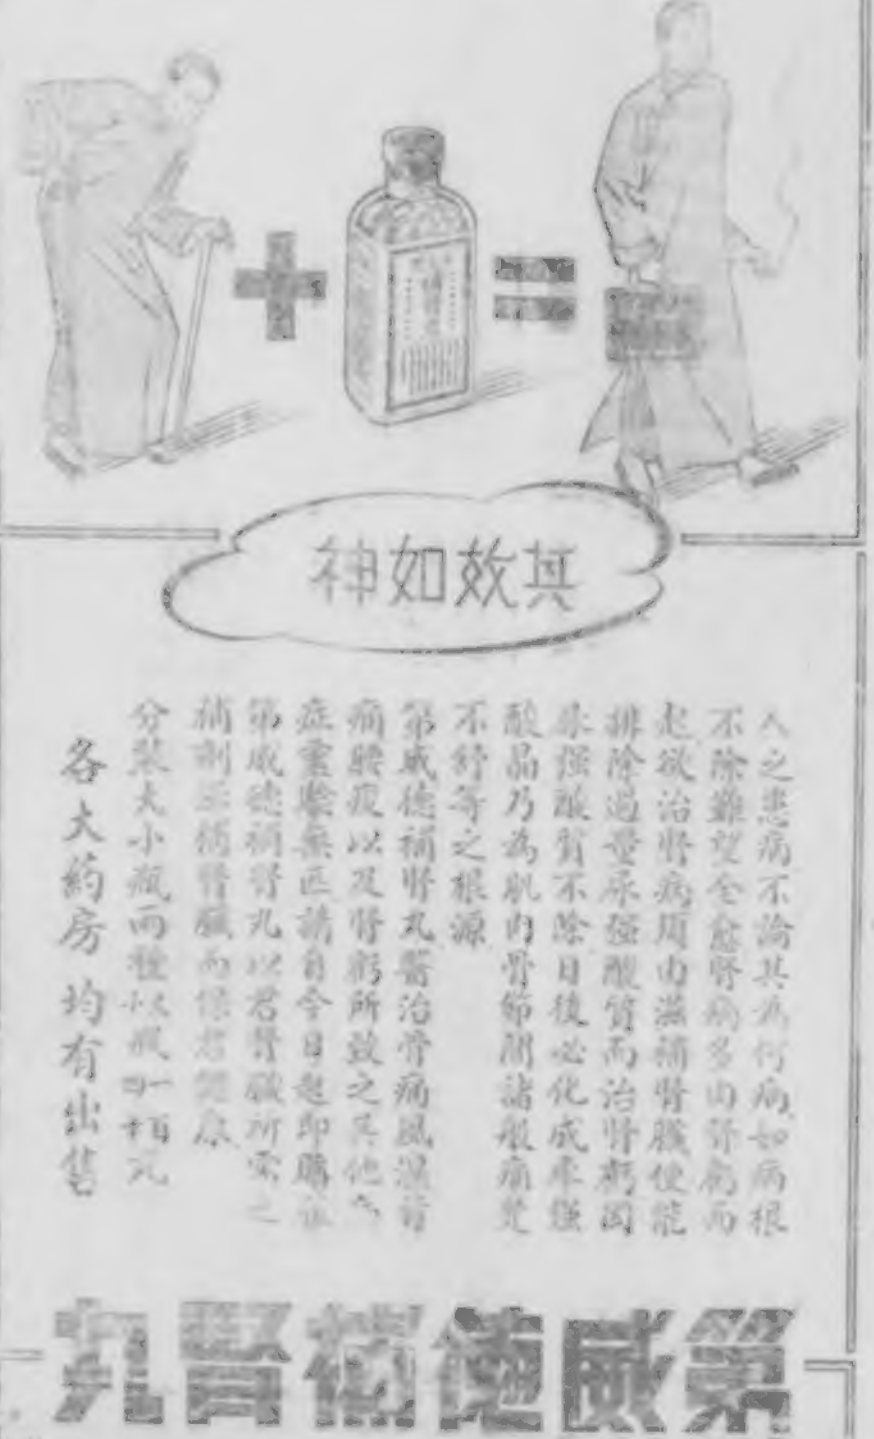 其效如神
人之患病不論其為何病如病根
不除難望全愈腎病多由腎虧而
起欲治腎病須由滋補腎臟使能
排除過量尿強酸質而治腎虧因
尿强酸質不除日後必化成尿强
酸晶乃為肌肉骨節間諸般痛楚
不舒等之根源
第威德補腎丸醫治骨痛風濕背
痛腰痠以及腎虧所致之其他
症靈驗無匹請自今日起即購
第威德補腎丸以君腎臟所需之
補劑 補腎臟而保君健康
分裝大小瓶兩種 瓶 元
各大药房均有出售
第威德補腎丸